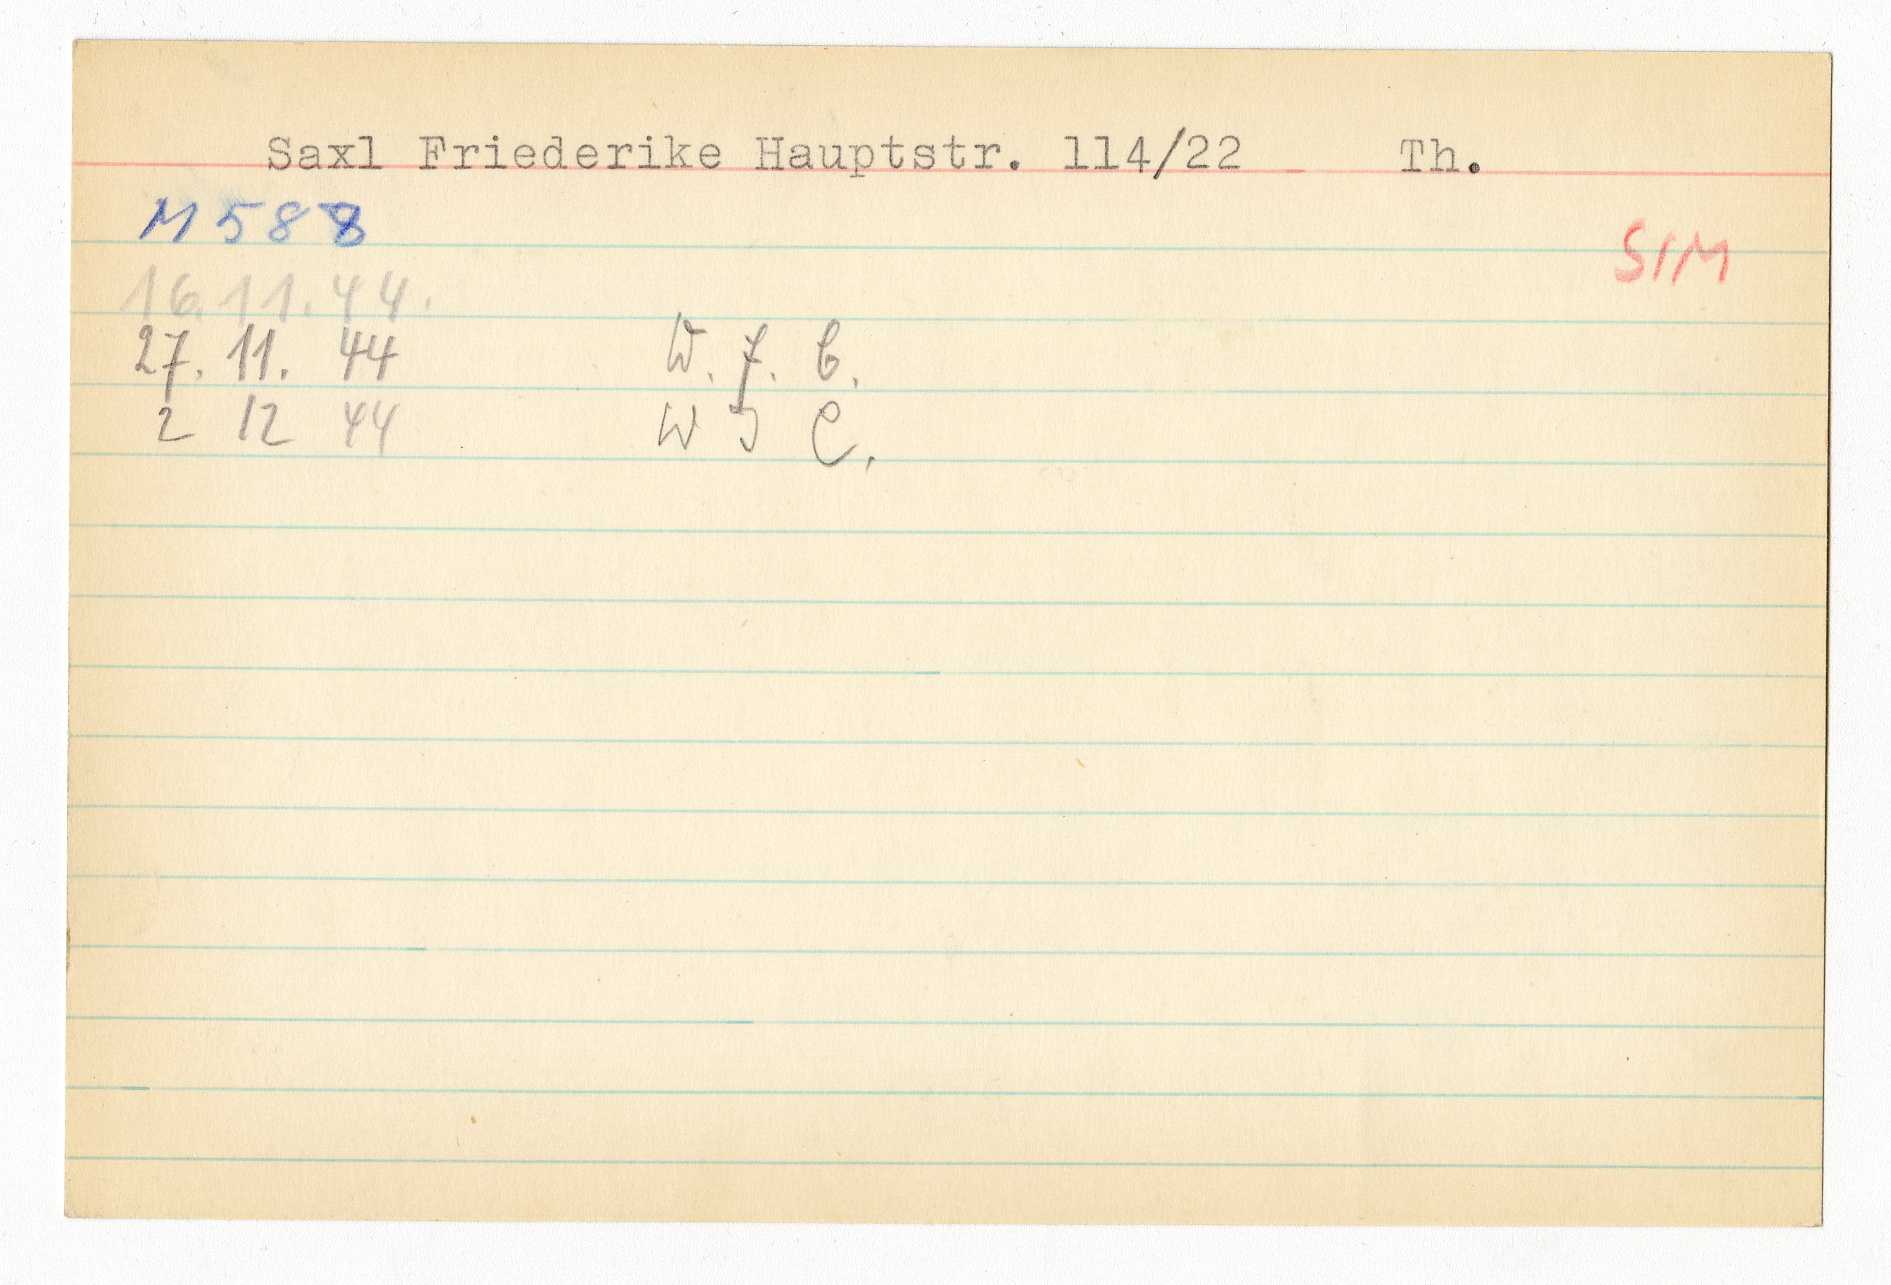 Saxl Friederike Hauptstr. 114/22 Th.
M 588
SIM
16.11.44.
27. 11. 44 W. J. C.
2 12 44 W J C.